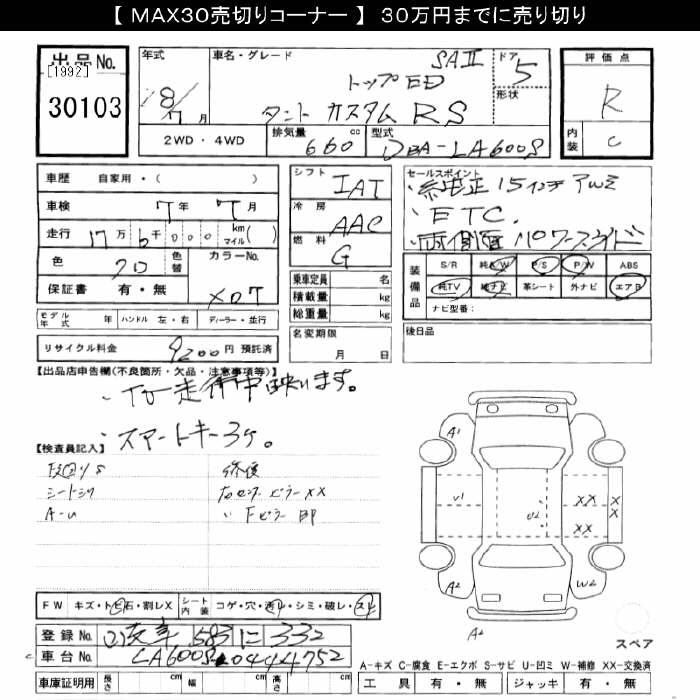 【 MAX30売切りコーナー 】 30万円までに売り切り
出品No.
[1992]
30103
年式
18/7 月
車名・グレード
SAⅡ
トップED
タント カスタム RS
ドア
5
形状
評価点
R
内装
C
2WD・4WD
排気量
660 cc
型式
DBA-LA600S
車歴 自家用・( )
車検 7年 7月
走行 17万 6千 000 km マイル( )
色 クロ 色替
カラーNo.
X07
保証書 有・無
モデル年式 年 ハンドル 左・右 ディーラー・並行
リサイクル料金 9200円 預託済
シフト IAT
冷房 AAC
燃料 G
乗車定員 名
積載量 kg
総重量 kg
名変期限
月 日
セールスポイント
・純正15インチアルミ
・ETC.
・両側電パワースライド
装備品
S/R 純A/W P/S P/W ABS
純TV 純ナビ 革シート 外ナビ エアB
ナビ型番:
後日品
【出品店申告欄(不良箇所・欠品・注意事項等)】
・TV走行中映ります。
・スマートキー3ケ。
【検査員記入】
シートシワ
A-U
修復
右センターピラーXX
〃 Fピラー
A1
U1
U2
XX
XX
XX
A2
W2
A2
スペア
FW キズ・トビ石・割レX
シート内装 コゲ・穴・汚レ・シミ・破レ・スレ
登録No. 583 に 332
車台No. LA600S-0444752
車庫証明用 長さ cm 幅 cm 高さ cm
A-キズ C-腐食 E-エクボ S-サビ U-凹ミ W-補修 XX-交換済
工具 有・無 ジャッキ 有・無